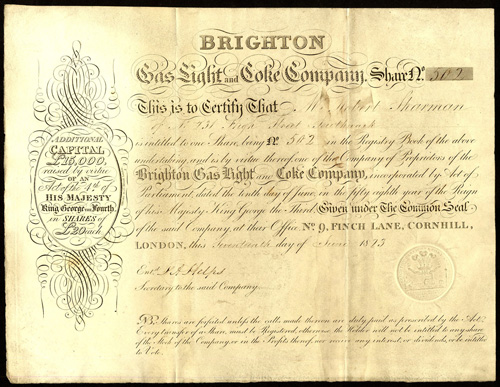 BRIGHTON
Gas Light and Coke Company. Share No. 502
This is to Certify That Mr Robert Sharman
of No 231 High Street Southwark
is intitled to one Share, being No. 502 in the Registry Book of the above
undertaking, and is by virtue thereof, one of the Company of Proprietors of the
Brighton Gas Light and Coke Company, incorporated by Act of
Parliament, dated the tenth day of June, in the fifty eighth year of the Reign
of his Majesty King George the Third. Given under The Common Seal
of the said Company, at their Office No. 9, FINCH LANE, CORNHILL,
LONDON, this Seventeenth day of June 18
Entd.
Secretary to the said Company.
NB. Shares are forfeited unless the calls made thereon are duly paid as prescribed by the Act.
Every transfer of a Share must be Registered, otherwise the Holder will not be intitled to any share
of the Stock of the Company, or in the Profits thereof, nor receive any interest, or dividends, or be intitled
to Vote.
ADDITIONAL
CAPITAL
£15,000,
raised by virtue
OF AN
Act of the 4th of
HIS MAJESTY
King George the Fourth,
in SHARES of
£20 each